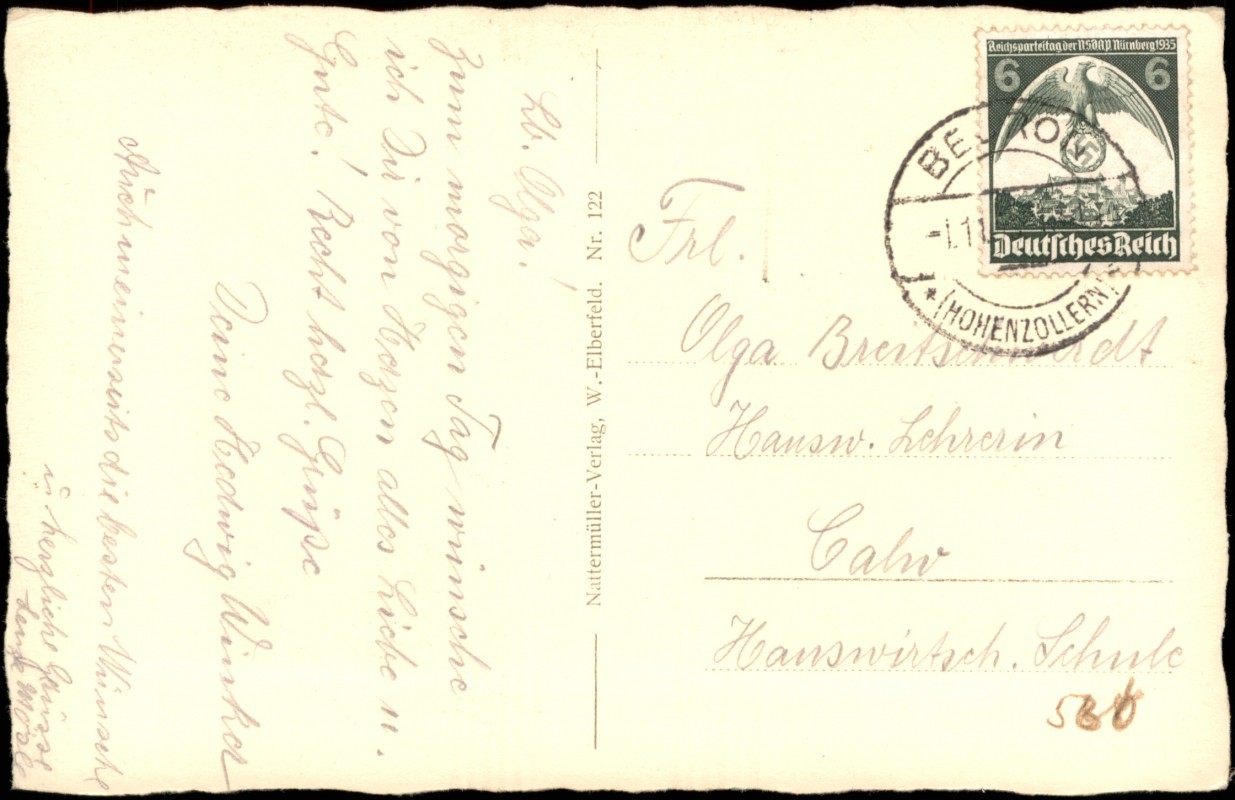 Lb. Olga!
Zum morgigen Tag wünsche
ich Dir von Herzen alles Liebe u.
Gute! Recht herzl. Grüße
Deine Hedwig Winker
Auch meinerseits die besten Wünsche
u. herzliche Grüsse
Nattermüller-Verlag, W.-Elberfeld. Nr. 122
Reichsparteitag der NSDAP Nürnberg 1935
6 6
Deutsches Reich
(HOHENZOLLERN)
Frl.
Olga Breitschwerdt
Hausw. Lehrerin
Calw
Hauswirtsch. Schule